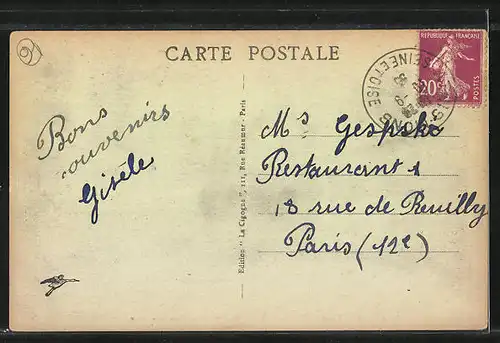 CARTE POSTALE
REPUBLIQUE FRANÇAISE
20c
POSTES
SEINE ET OISE
Bons
souvenirs
Gisèle
Edition " La Cigogne ", 111, Rue Réaumur - Paris
Ms
Restaurant
18 rue de Reuilly
Paris (12e)